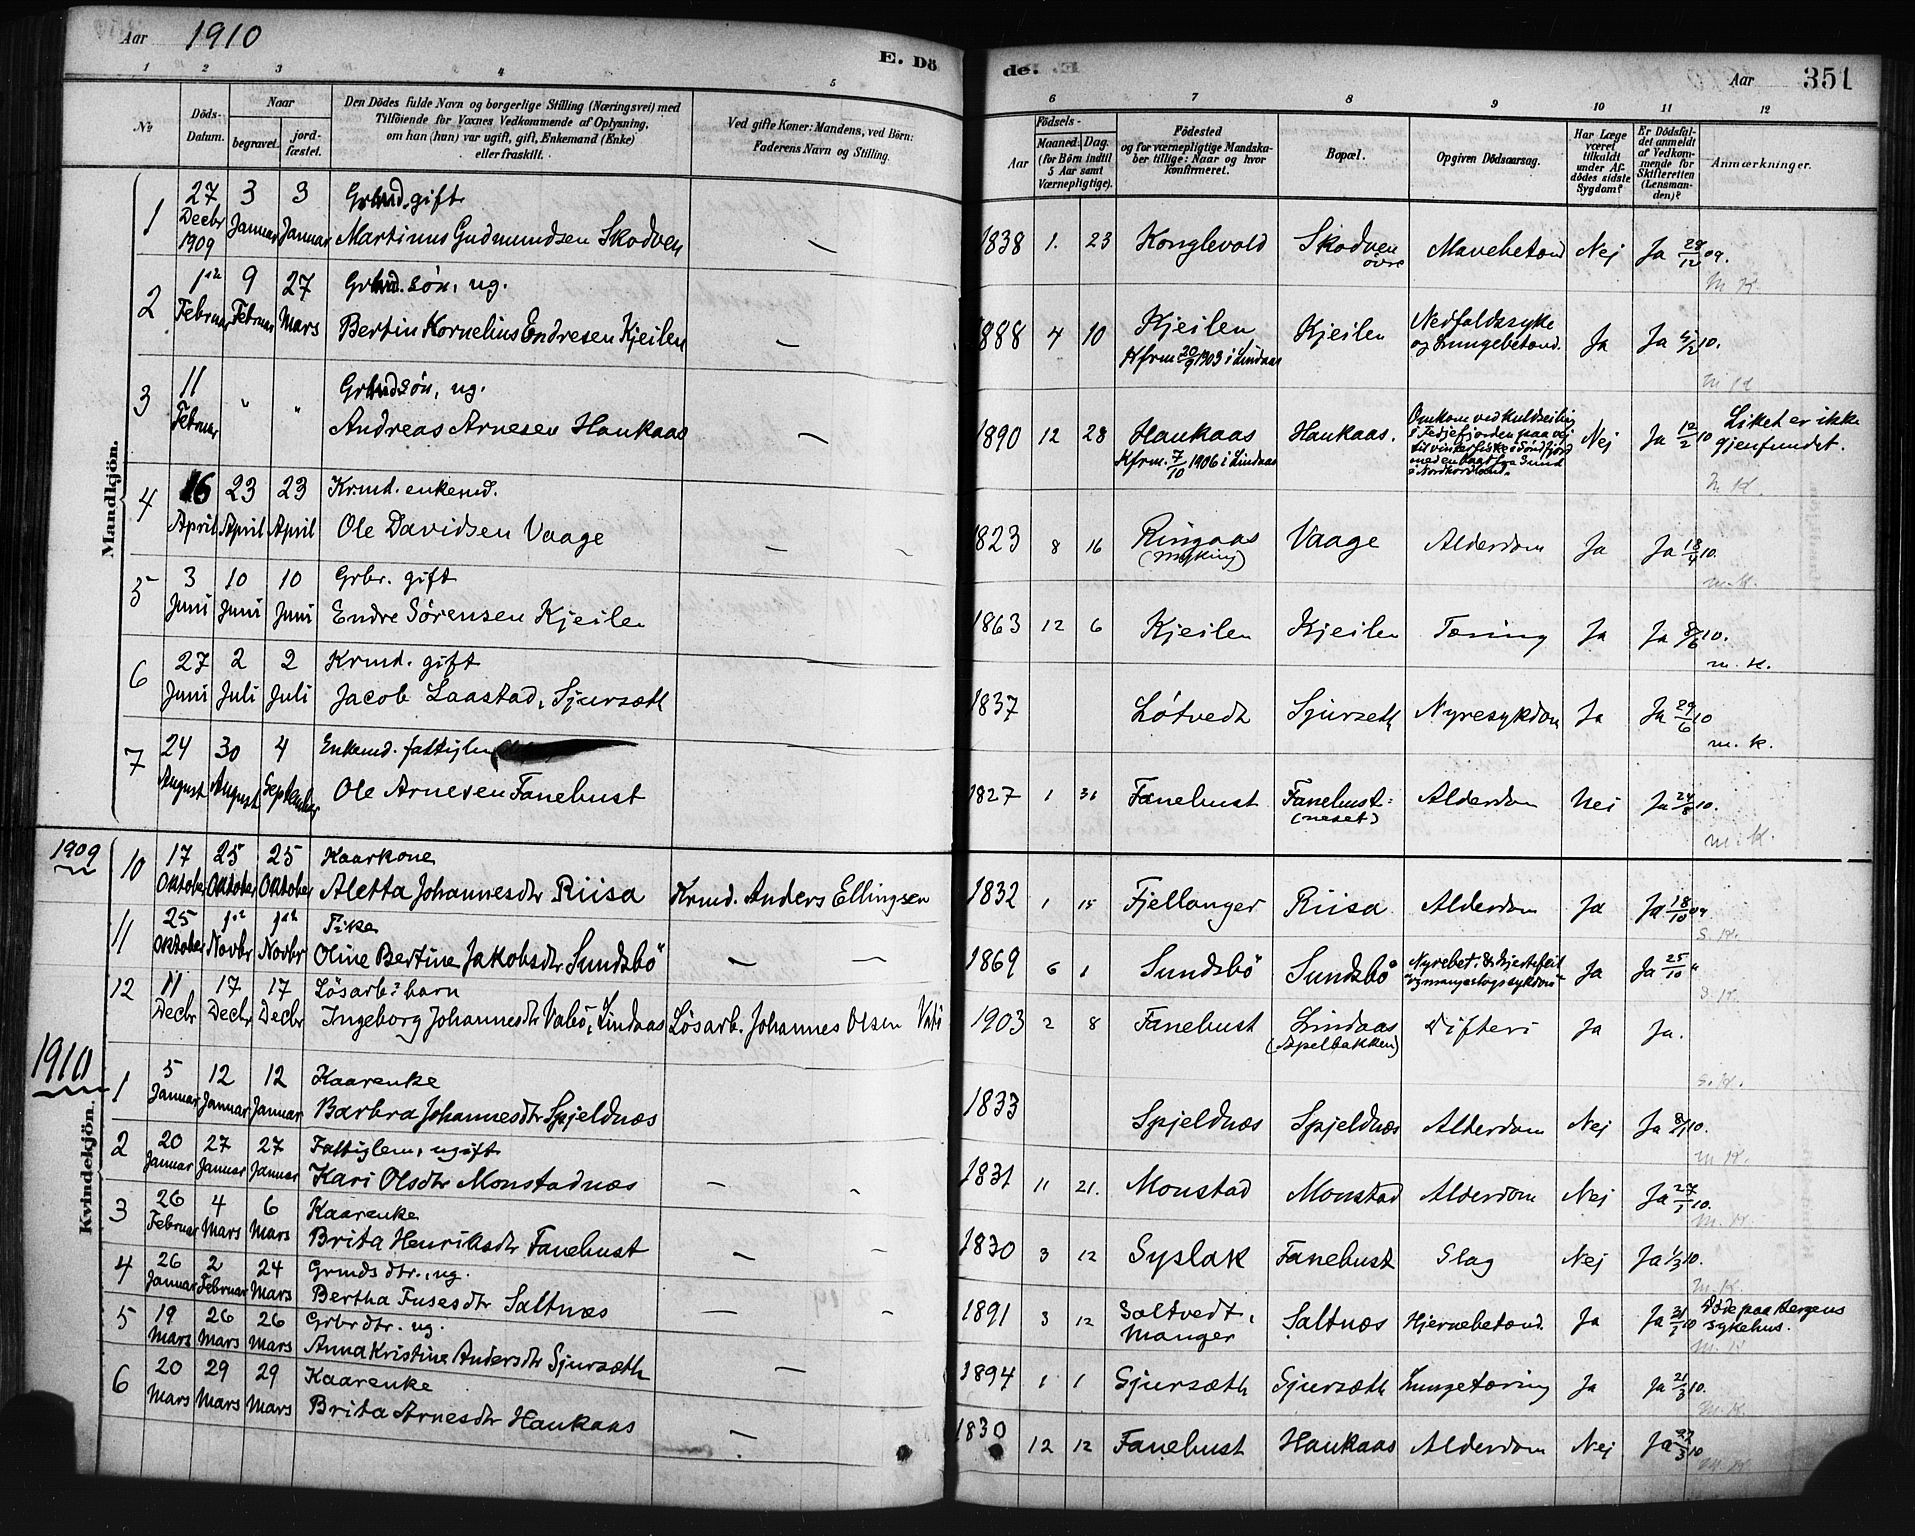 Aar 1910
E. Dö
de.
Aar 351
1 2 3 4 5
6 7 8 9 10 11 12
No
Döds-Datum.
Naar
begravet.
jord-fæstet.
Den Dödes fulde Navn og borgerlige Stilling (Næringsvei) med
Tilföiende for Voxnes Vedkommende af Oplysning,
om han (hun) var ugift, gift, Enkemand (Enke)
eller fraskilt.
Ved gifte Koner: Mandens, ved Börn:
Faderens Navn og Stilling.
Födsels-
Aar
Maaned. Dag.
(for Börn indtil
5 Aar samt
Værnepligtige).
Födested
og for værnepligtige Mandska-
ber tillige: Naar og hvor
konfirmeret.
Bopæl.
Opgiven Dödsaarsag.
Har Læge
været
tilkaldt
under Af-
dödes sidste
Sygdom?
Er Dödsfal-
det anmeldt
af Vedkom-
mende for
Skifteretten
(Lensman-
den)?
Anmærkninger.
Mandkjön.
1 27 Decbr 1909 3 Januar 3 Januar Grbmd. gift
Martinus Gudmundsen Skodven — 1838 1. 23 Konglevold Skodven övre Mavebetænd Nej Ja 28/12 09.
m. K.
2 1ste Februar 9 Februar 27 Mars Grbmd. sön, ug.
Bertin Kornelius Endresen Kjeilen — 1888 4 10 Kjeilen Kfrm 20/9 1903 i Lindaas Kjeilen Nedfaldssyke og Lungebetænd. Ja Ja 4/2 10.
m. K.
3 11 Februar " " Grbmd sön, ug.
Andreas Arnesen Haukaas — 1890 12 28 Haukaas Kfrm. 7/10 1906 i Lindaas Haukaas. Omkom ved kuldseiling i Fedjefjorden paa vej til vinterfiske i Söndfjord med en baad fra Sund i Nordhordland. Nej Ja 12/2 10 Liket er ikke gjenfundet.
m. K.
4 16 April 23 April 23 April Krmd. enkemd.
Ole Davidsen Vaage — 1823 8 16 Ringaas (Myking) Vaage Alderdom Ja Ja 18/4 10.
m. K.
5 3 Juni 10 Juni 10 Juni Grbr. gift
Endre Sörensen Kjeilen 1863 12 6 Kjeilen Kjeilen Tæring Ja Ja 8/6 10.
m. K.
6 27 Juni 2 Juli 2 Juli Krmd. gift
Jacob Laastad, Sjursæth 1837 Lötvedt Sjursæth Nyresykdom Ja Ja 29/6 10
m. K.
7 24 August 30 August 4 September Enkemd. fattiglem
Ole Arnesen Fanehust 1827 1 31 Fanehust Fanehust: (neset) Alderdom Nei Ja 24/8 10.
m. K.
1909
10 17 Oktober 25 Oktober 25 Oktober Kaarkone
Aletta Johannesdtr Riisa Krmd. Anders Ellingsen 1832 1 15 Fjellanger Riisa Alderdom Ja Ja 18/10 09
s. K.
11 25 Oktober 1ste Novbr 1ste Novbr Pike
Oline Bertine Jakobsdtr Sundsbö — — 1869 6 1 Sundsbö Sundsbö Nyrebet. & Hjertefeil Ja Ja 25/10 "
s. K.
12 11 Decbr 17 Decbr 17 Decbr Lösarb. barn
Ingeborg Johannesdtr Vabö, Lindaas Lösarb. Johannes Olsen 1903 2 8 Fanehust Lindaas (Apelbakken) Difteri Ja Ja.
s. K.
1910
Kvindekjön.
1 5 Januar 12 Januar 12 Januar Kaarenke
Barbra Johannesdtr Spjeldnæs 1833 Spjeldnæs Spjeldnæs Alderdom Nej Ja 8/1 10.
m. K.
2 20 Januar 27 Januar 27 Januar Fattiglem, ugift
Kari Olsdtr Monstadnæs — 1831 11 21. Monstad Monstad Alderdom Nej Ja 27/1 10.
m. K.
3 26 Februar 4 Mars 6 Mars Kaarenke
Brita Henriksdtr Fanehust — 1830 3 12 Syslak Fanehust Slag Nej Ja 1/3 10.
m. K.
4 26 Januar 2 Februar 24 Mars Grmds dtr., ug.
Bertha Fusesdtr Saltnæs — 1891 3 12 Saltvedt, Manger Saltnæs Hjernebetænd. Ja Ja 31/1 10 Döde paa Bergens sykehus.
m. K.
5 19 Mars 26 Mars 26 Mars Grbr dtr. ug.
Anna Kristine Andersdtr Sjursæth — 1894 1 1 Sjursæth Sjursæth Lungetæring Ja Ja 21/3 10.
m. K.
6 20 Mars 29 Mars 29 Mars Kaarenke
Brita Arnesdtr Haukaas — 1830 12 12 Fanehust Haukaas Alderdom Nej Ja 22/3 10
m. K.